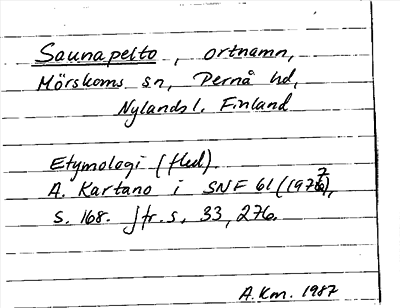 Saunapelto, ortnamn,
Mörskoms sn, Pernå hd,
Nylands l. Finland
Etymologi (fled).
A. Kartano i SNF 61 (1977),
s. 168. Jfr. s. 33, 276.
A.Km. 1987